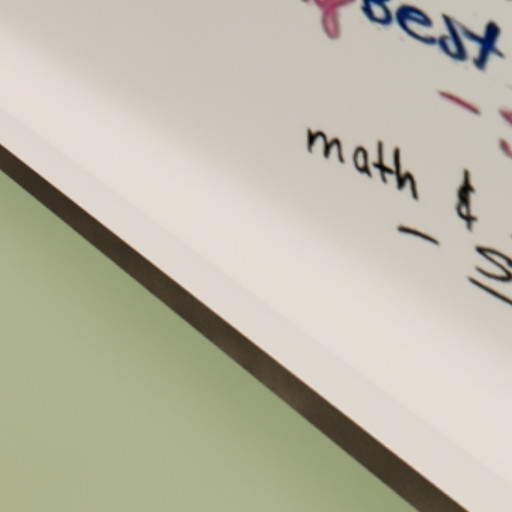 Best
-
math &
-